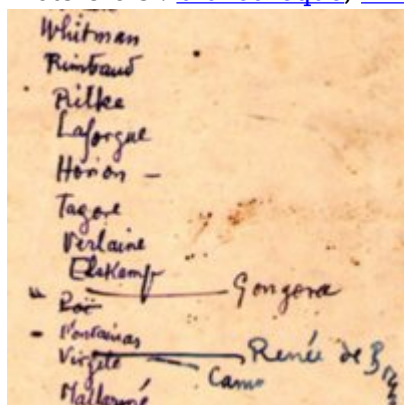 Whitman
Rimbaud
Rilke
Laforgue
Horion –
Tagore
Verlaine
Elskamp
Gongora
Fontainas
Virgile
Renée de
Mallarmé